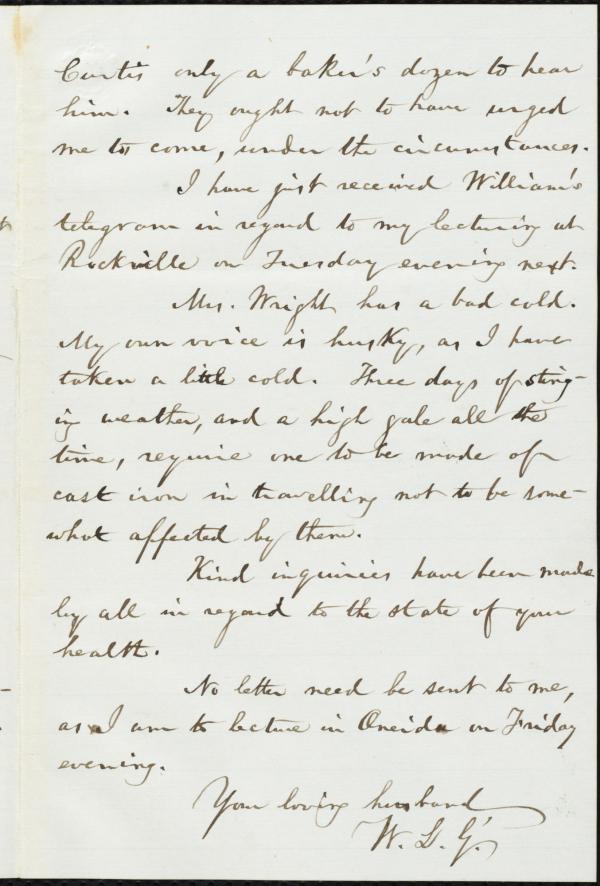 Curtis only a baker's dozen to hear
him. They ought not to have urged
me to come, under the circumstances.
I have just received William's
telegram in regard to my lecturing at
Rockville on Tuesday evening next.
Mrs. Wright has a bad cold.
My own voice is husky, as I have
taken a little cold. Three days of sting-
ing weather, and a high gale all the
time, require one to be made of
cast iron in travelling not to be some-
what affected by them.
Kind inquiries have been made
by all in regard to the state of your
health.
No letter need be sent to me,
as I am to lecture in Oneida on Friday
evening.
Your loving husband
W. L. G.